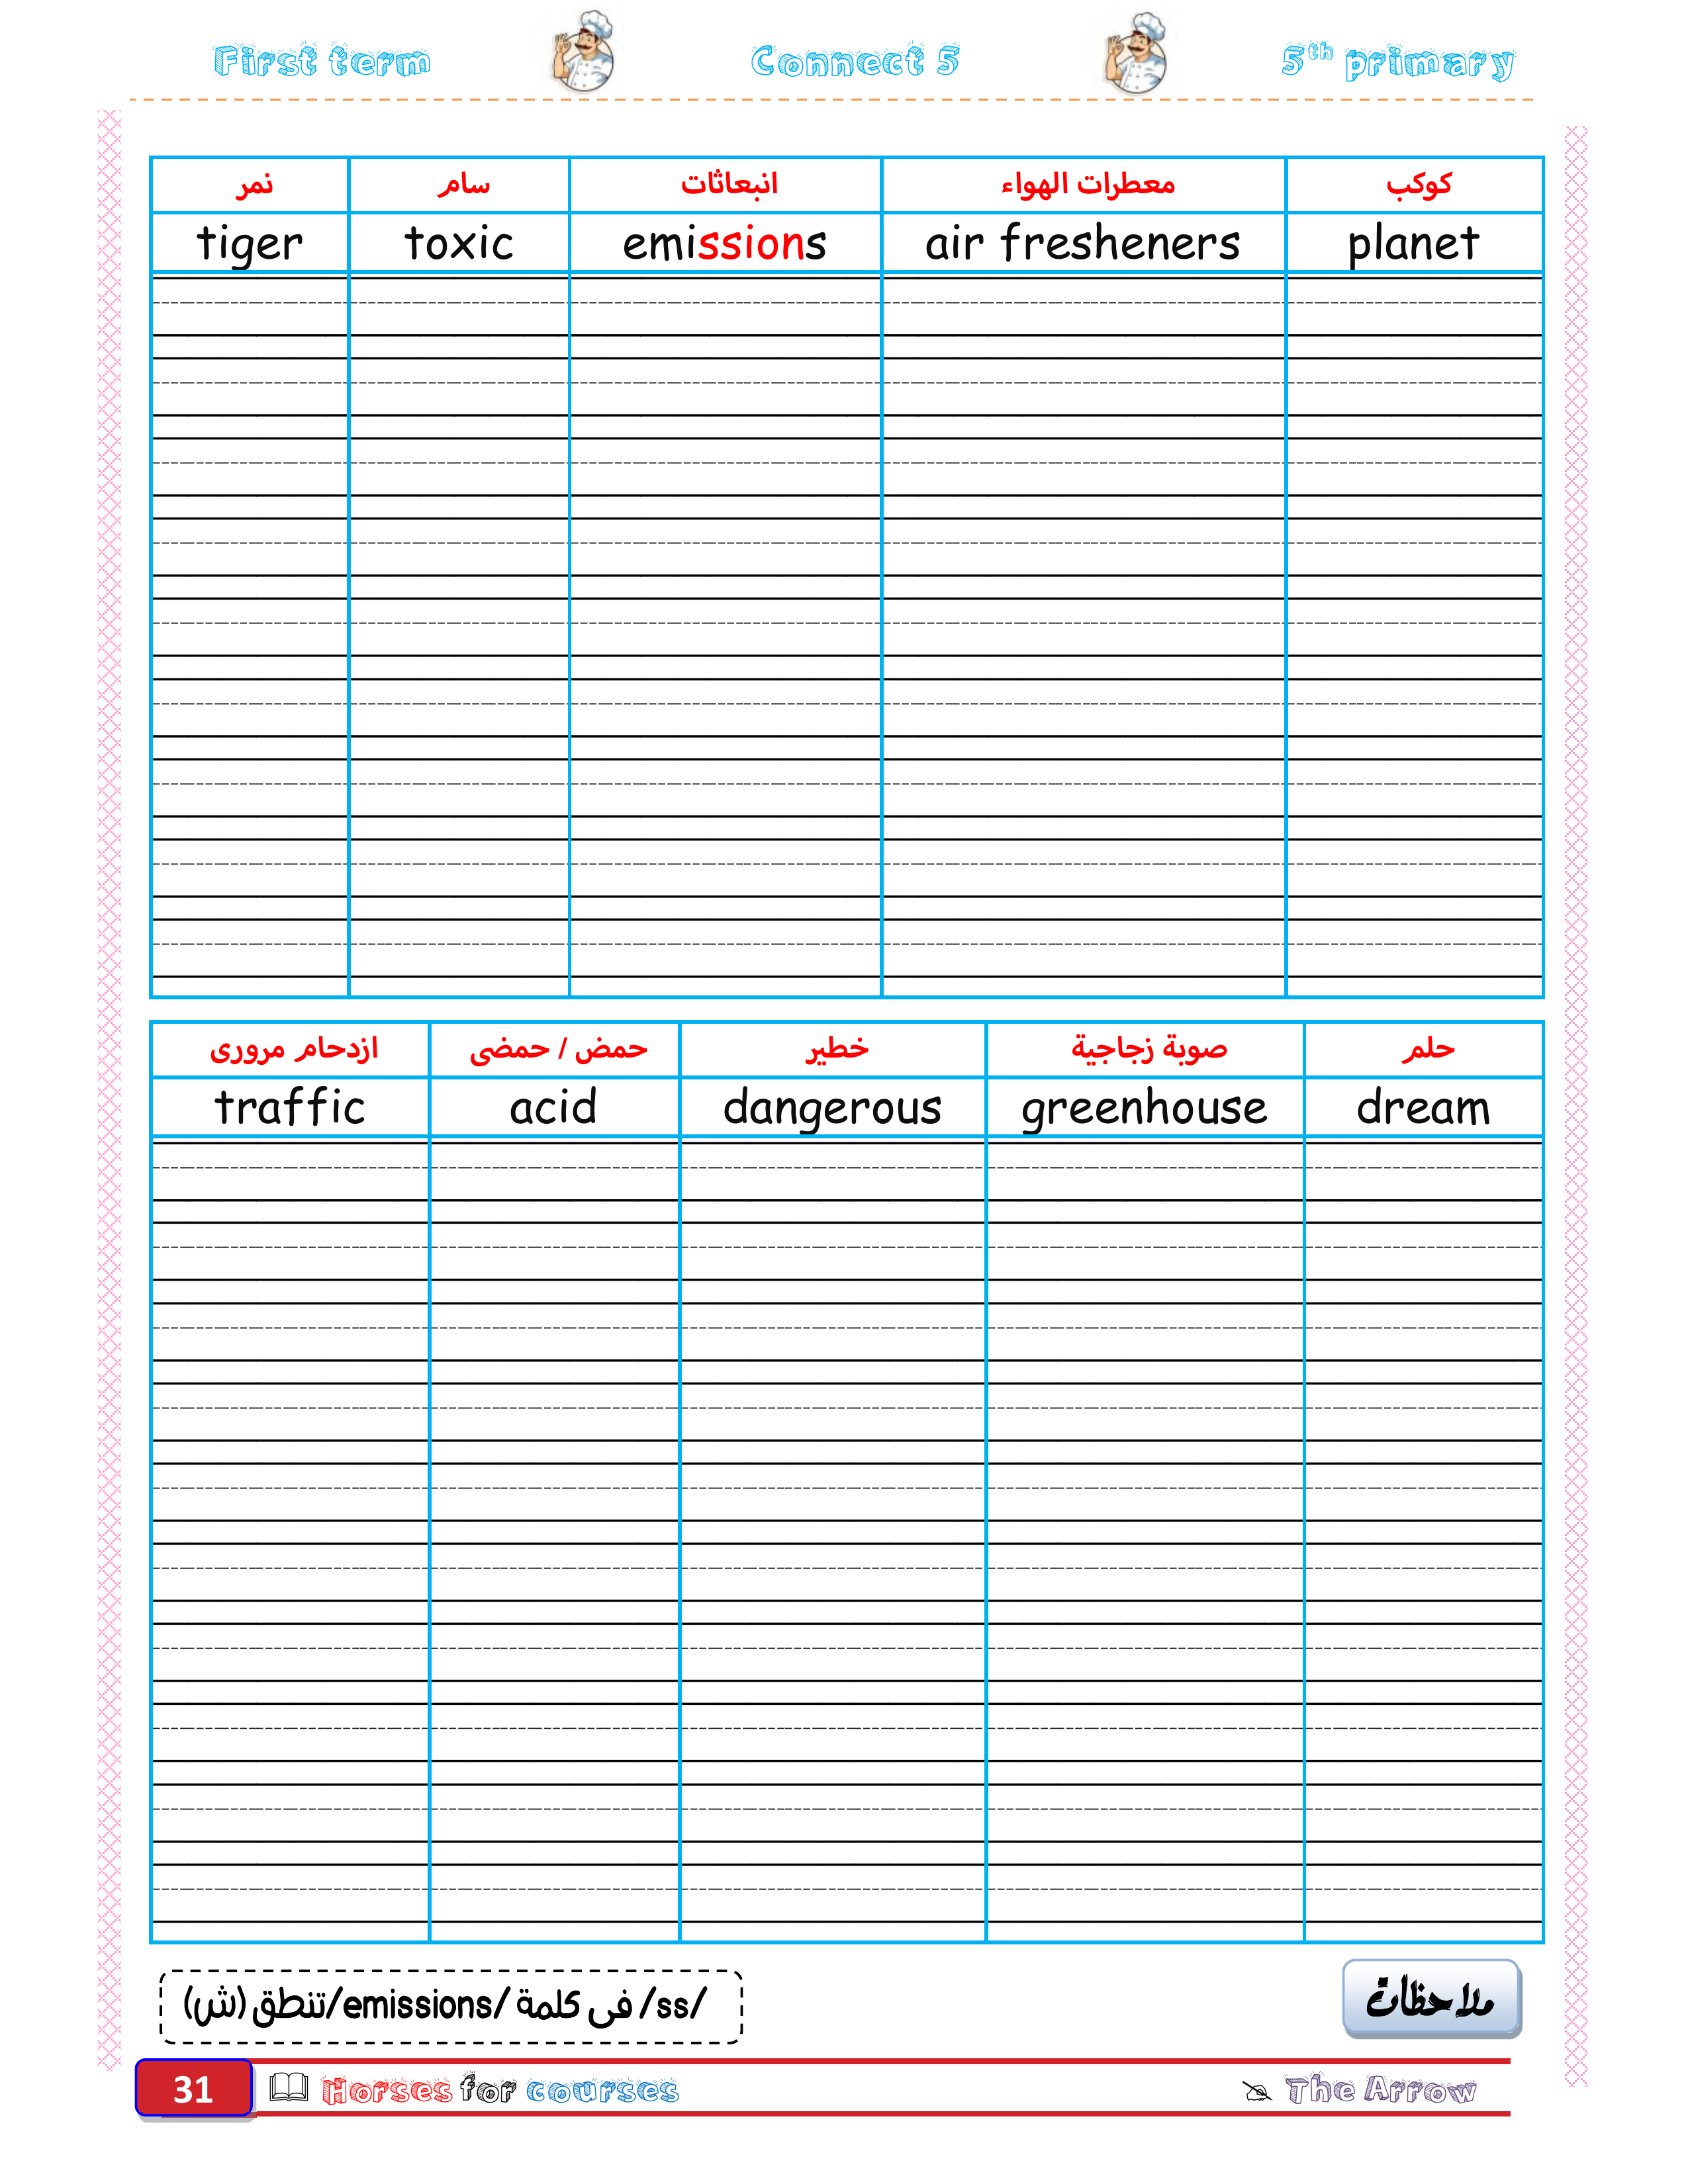 First term Connect 5 5th primary
نمر سام انبعاثات معطرات الهواء كوكب
tiger toxic emissions air fresheners planet
ازدحام مرورى حمض / حمضى خطير صوبة زجاجية حلم
traffic acid dangerous greenhouse dream
ملاحظات
/ss/ فى كلمة /emissions/تنطق (ش)
31 Horses for courses The Arrow